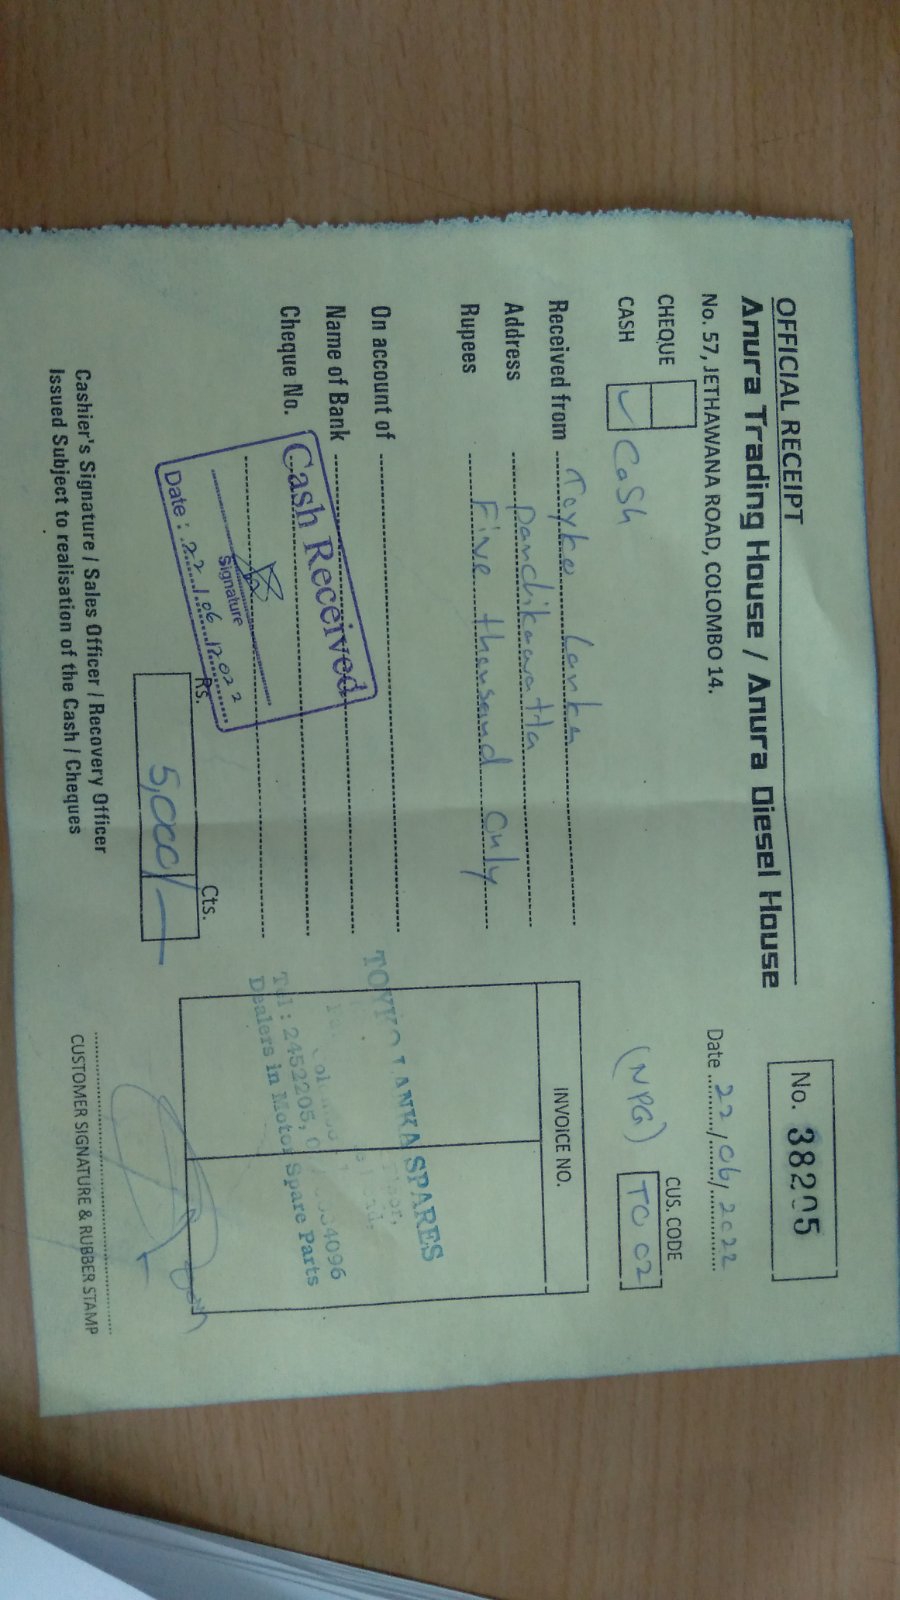 OFFICIAL RECEIPT
Anura Trading House / Anura Diesel House
No. 57, JETHAWANA ROAD, COLOMBO 14.
No. 38205
Date 22/06/2022
CHEQUE
CASH ✓ Cash
(NPG)
CUS. CODE
TO 02
Received from Toyko Lanka
Address Panchikawatta
Rupees Five thousand only
On account of
Name of Bank
Cheque No.
Cash Received
Signature
Date : 22/06/2022
Rs. Cts.
5,000/-
INVOICE NO.
TOYKO LANKA SPARES
Tel : 2452205,
Dealers in Motor Spare Parts
Cashier's Signature / Sales Officer / Recovery Officer
Issued Subject to realisation of the Cash / Cheques
CUSTOMER SIGNATURE & RUBBER STAMP